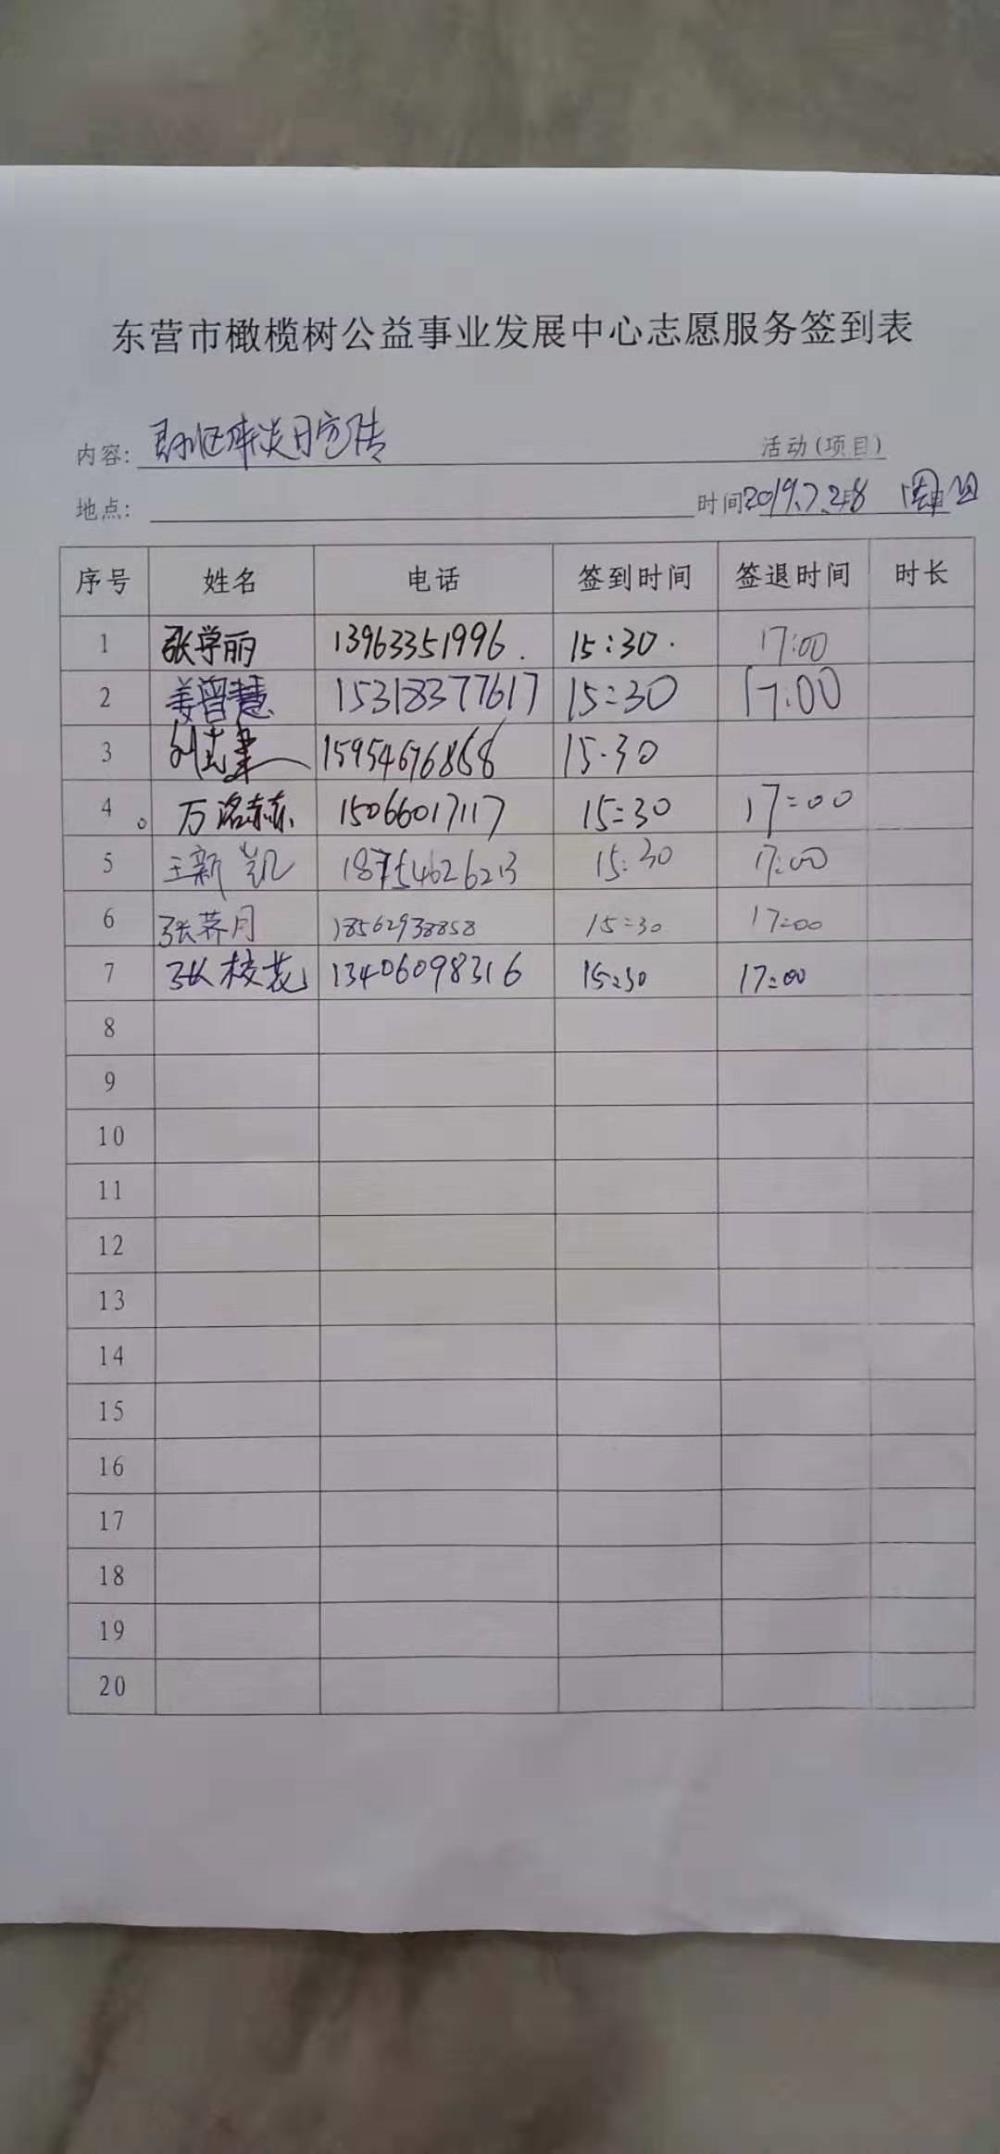 东营市橄榄树公益事业发展中心志愿服务签到表
内容: 肝炎日宣传 活动(项目)
地点: 时间2019.7.28 周日
序号 姓名 电话 签到时间 签退时间 时长
1 张学丽 13963351996. 15:30. 17:00
2 姜曾慧 15318377617 15:30 17:00
3 15954676868 15.30
4 万洛赫 15066017117 15:30 17:00
5 王新凯 18754626213 15:30 17:00
6 张荞月 18562938858 15:30 17:00
7 张校花 13406098316 15:30 17:00
8
9
10
11
12
13
14
15
16
17
18
19
20